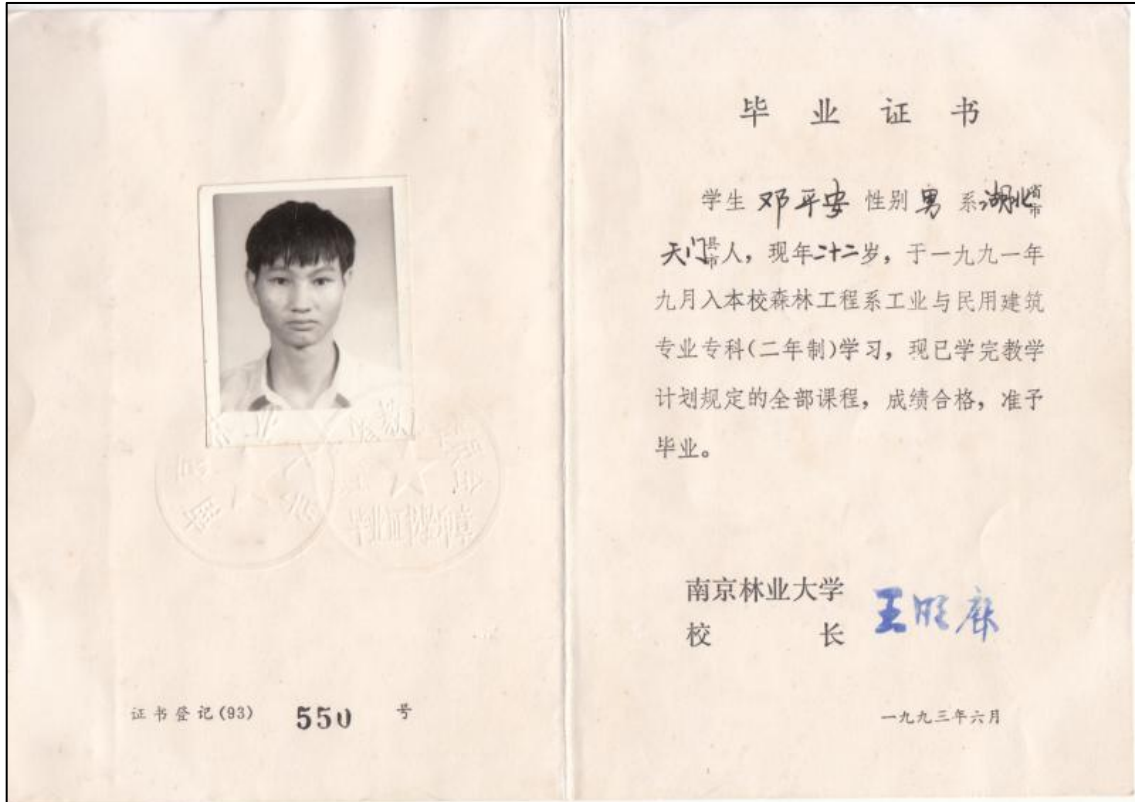 证书登记(93) 550 号
毕业证书
学生 邓平安 性别 男 系 湖北省市
天门县市人，现年二十二岁，于一九九一年
九月入本校森林工程系工业与民用建筑
专业专科(二年制)学习，现已学完教学
计划规定的全部课程，成绩合格，准予
毕业。
南京林业大学
校长
一九九三年六月